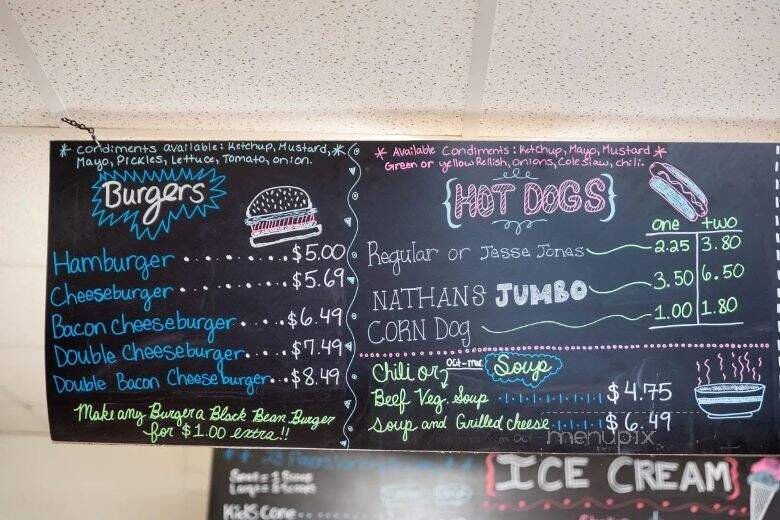 * Condiments available: Ketchup, Mustard, *
Mayo, Pickles, Lettuce, Tomato, onion.
Burgers
Hamburger ...... $5.00
Cheeseburger ..... $5.69
Bacon Cheeseburger... $6.49
Double Cheeseburger.... $7.49
Double Bacon Cheeseburger... $8.49
Make any Burger a Black Bean Burger
for $1.00 extra!!
* Available Condiments: Ketchup, Mayo, Mustard *
Green or yellow Relish, onions, Coleslaw, chili.
HOT DOGS
one two
Regular or Jesse Jones 2.25 3.80
NATHANS JUMBO 3.50 6.50
CORN DOG 1.00 1.80
oct-mar Soup
Chili or
Beef Veg. Soup $4.75
Soup and Grilled cheese $6.49
menupix
ICE CREAM
Kids Cone